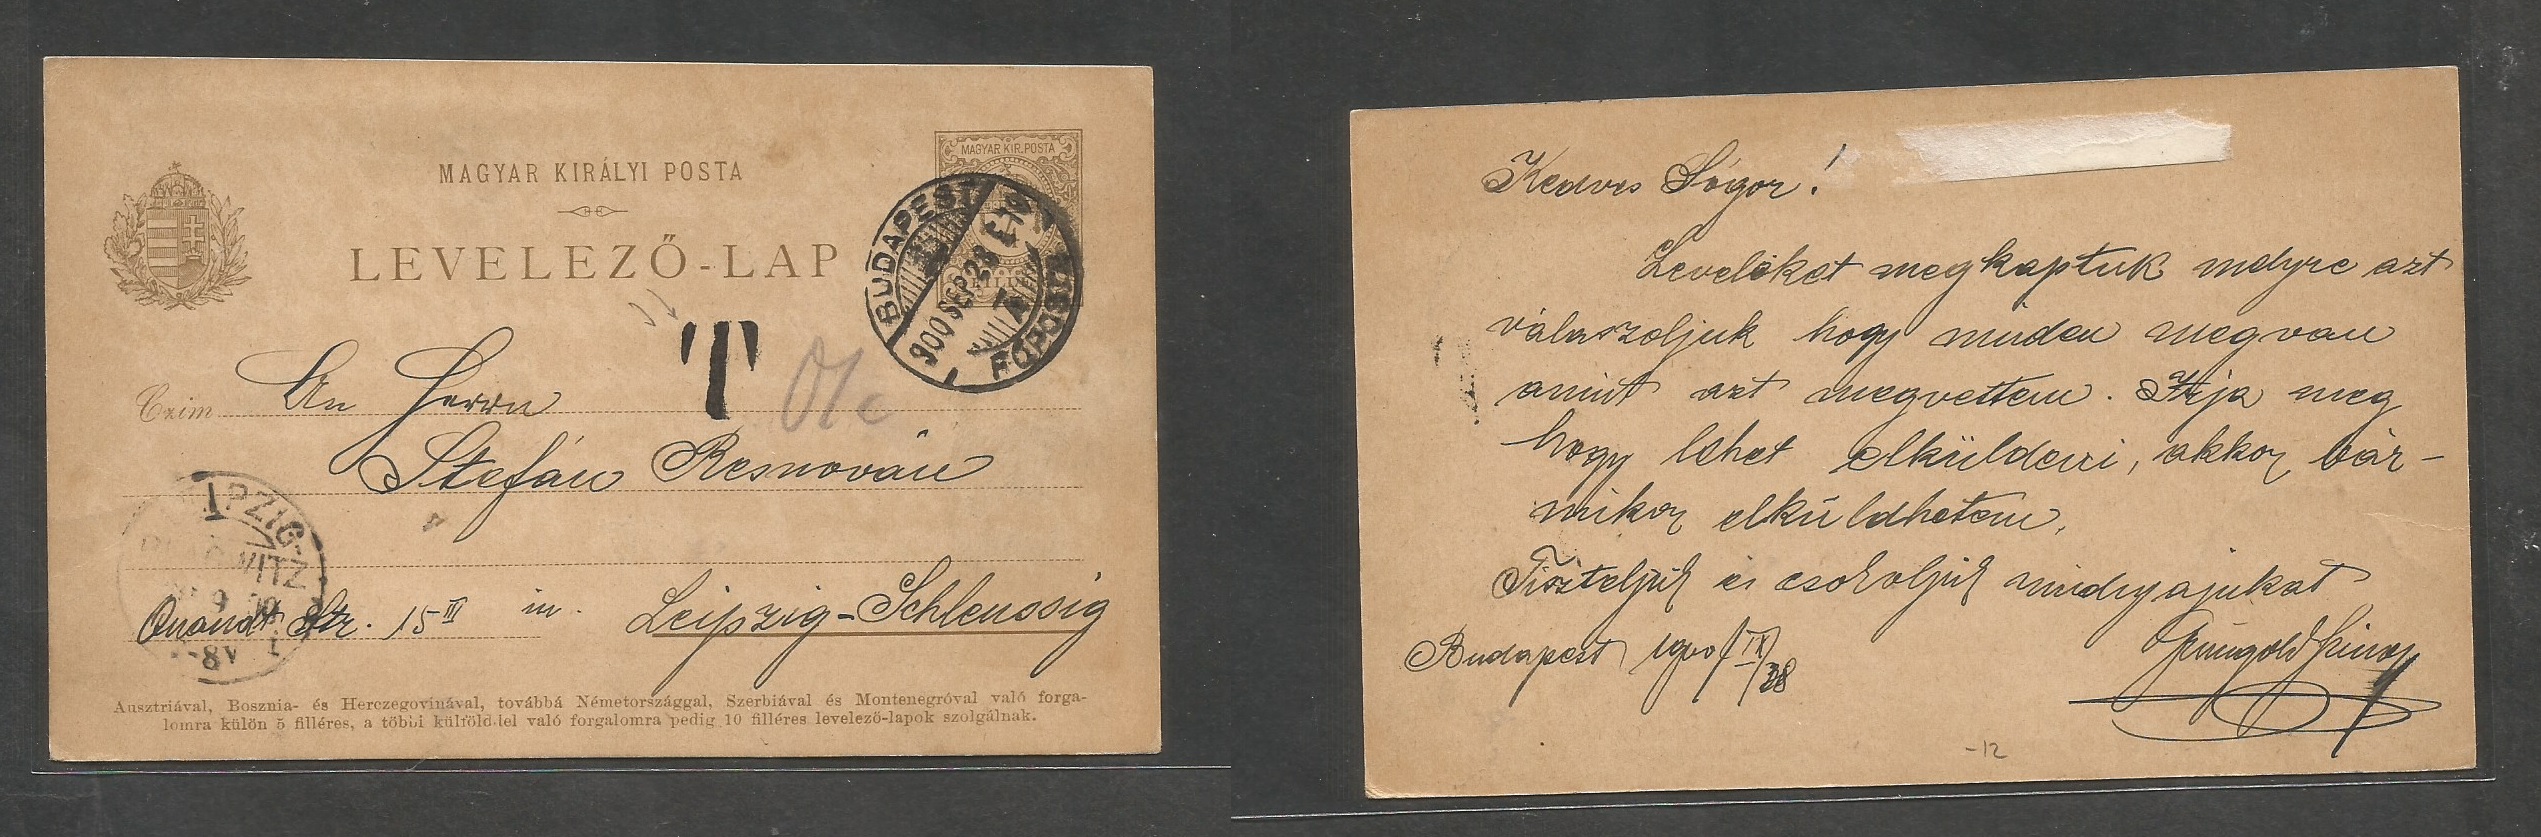 MAGYAR KIRÁLYI POSTA
LEVELEZŐ-LAP
MAGYAR KIR. POSTA
BUDAPEST
900 SEP 28
FŐPOSTA
T
Czim An Herrn
Stefán Resnován
LEIPZIG-
Quandt Str. 15 III in. Leipzig-Schleussig
8V
Ausztriával, Bosznia- és Herczegovinával, továbbá Németországgal, Szerbiával és Montenegróval való forga-
lomra külön 5 filléres, a többi külfölddel való forgalomra pedig 10 filléres levelező-lapok szolgálnak.
Kedves Sógor!
Leveléket megkaptuk melyre azt
válaszoljuk hogy minden megvan
amint azt megvettem. Irja meg
hogy lehet elküldeni, akkor bár-
mikor elküldhetem.
Tiszteljük és csokoljuk mindnyájukat
Budapest 1900/IX/28
-12